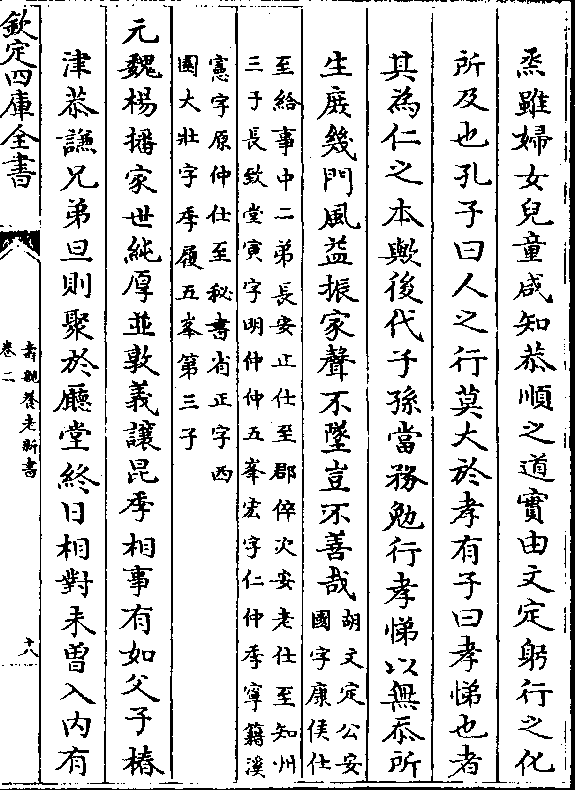 烝雖婦女兒童咸知恭順之道實由文定躬行之化
所及也孔子曰人之行莫大於孝有子曰孝悌也者
其為仁之本歟後代子孫當務勉行孝悌以無忝所
生庶幾門風益振家聲不墜豈不善哉
胡文定公安
國字康侯仕
至給事中二弟長安止仕至郡倅次安老仕至知州
三子長致堂寅字明仲仲五峯宏字仁仲季寧籍溪
憲字原仲仕至秘書省正字西
園大壯字季履五峯第三子
元魏楊播家世純厚並敦義讓昆季相事有如父子椿
津恭謙兄弟旦則聚於廳堂終日相對未曾入内有
欽定四庫全書
壽親養老新書
卷二
十八